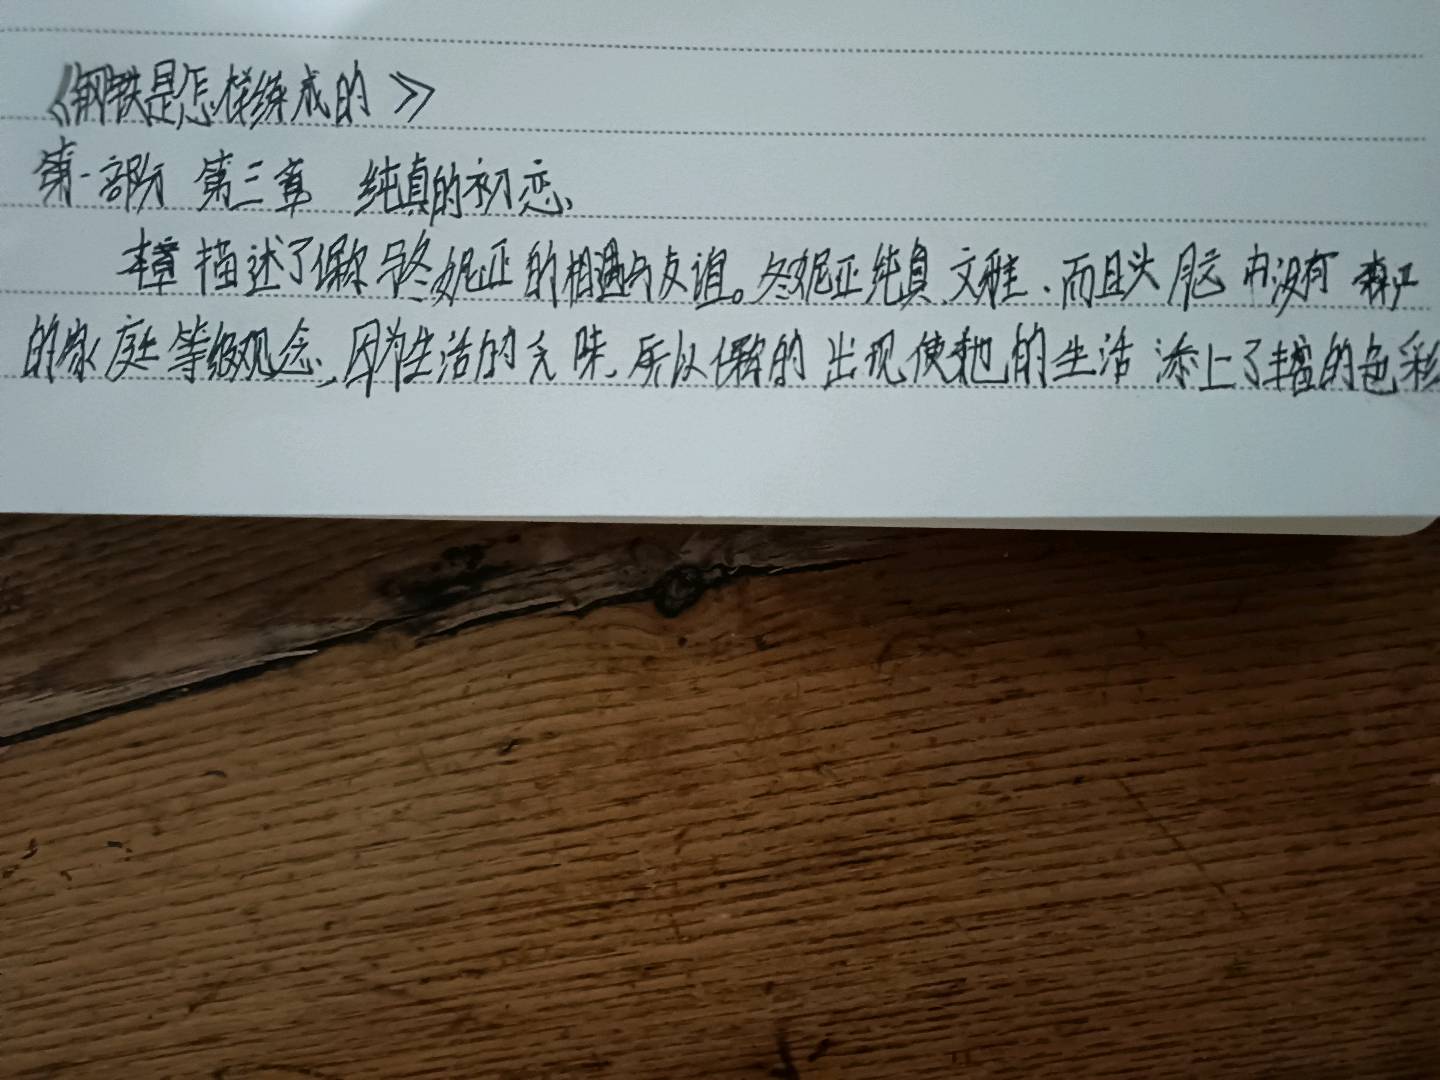 《钢铁是怎样练成的》
第一部分 第三章 纯真的初恋
本章描述了保尔与冬妮亚的相遇与友谊。冬妮亚纯真、文雅、而且头脑中没有森严
的家庭等级观念、因为生活的乏味、所以保尔的出现使她的生活添上了丰富的色彩